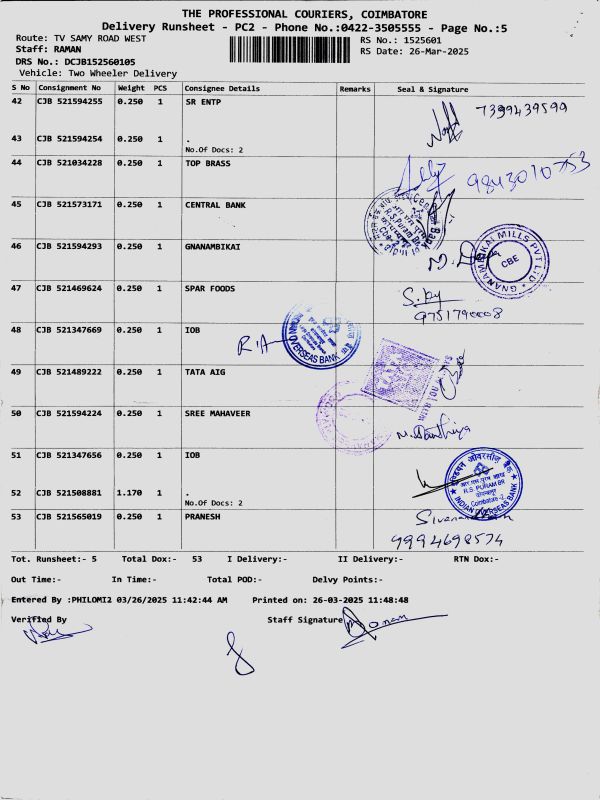 THE PROFESSIONAL COURIERS, COIMBATORE
Delivery Runsheet - PC2 - Phone No.:0422-3505555 - Page No.:5
Route: TV SAMY ROAD WEST
RS No.: 1525601
Staff: RAMAN
RS Date: 26-Mar-2025
DRS No.: DCJB152560105
Vehicle: Two Wheeler Delivery
S No Consignment No Weight PCS Consignee Details Remarks Seal & Signature
42 CJB 521594255 0.250 1 SR ENTP 7399439599
43 CJB 521594254 0.250 1 .
No.Of Docs: 2
44 CJB 521034228 0.250 1 TOP BRASS 9843010753
45 CJB 521573171 0.250 1 CENTRAL BANK
46 CJB 521594293 0.250 1 GNANAMBIKAI
GNANAMBIKAI MILLS PVT LTD
CBE
47 CJB 521469624 0.250 1 SPAR FOODS
9751790008
48 CJB 521347669 0.250 1 IOB
OVERSEAS BANK
49 CJB 521489222 0.250 1 TATA AIG
50 CJB 521594224 0.250 1 SREE MAHAVEER
51 CJB 521347656 0.250 1 IOB
इण्डियन ओवरसीज़ बैंक
R.S. PURAM BR
Coimbatore-2
INDIAN OVERSEAS BANK
52 CJB 521508881 1.170 1 .
No.Of Docs: 2
53 CJB 521565019 0.250 1 PRANESH
9994698574
Tot. Runsheet:- 5 Total Dox:- 53 I Delivery:- II Delivery:- RTN Dox:-
Out Time:- In Time:- Total POD:- Delvy Points:-
Entered By :PHILOMI2 03/26/2025 11:42:44 AM Printed on: 26-03-2025 11:48:48
Verified By Staff Signature